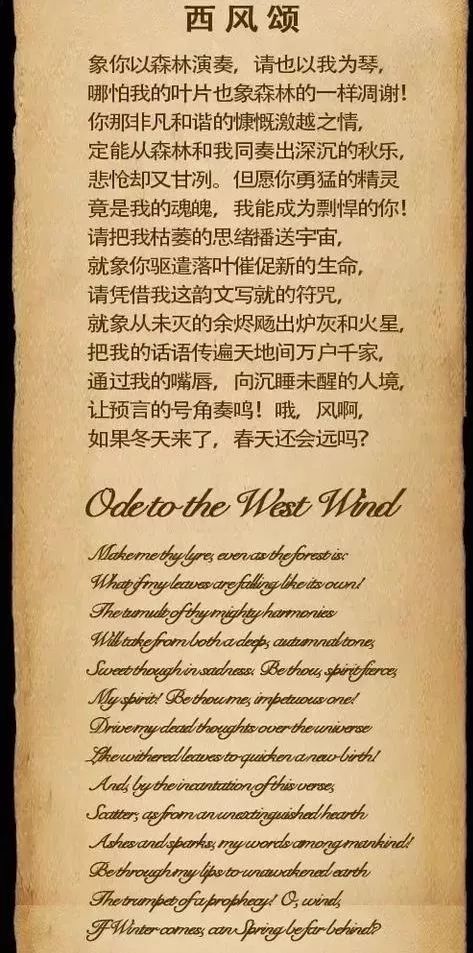 西风颂
象你以森林演奏，请也以我为琴，
哪怕我的叶片也象森林的一样凋谢！
你那非凡和谐的慷慨激越之情，
定能从森林和我同奏出深沉的秋乐，
悲怆却又甘冽。但愿你勇猛的精灵
竟是我的魂魄，我能成为剽悍的你！
请把我枯萎的思绪播送宇宙，
就象你驱遣落叶催促新的生命，
请凭借我这韵文写就的符咒，
就象从未灭的余烬飏出炉灰和火星，
把我的话语传遍天地间万户千家，
通过我的嘴唇，向沉睡未醒的人境，
让预言的号角奏鸣！哦，风啊，
如果冬天来了，春天还会远吗？
Ode to the West Wind
Make me thy lyre, even as the forest is:
What if my leaves are falling like its own!
The tumult of thy mighty harmonies
Will take from both a deep, autumnal tone,
Sweet though in sadness. Be thou, spirit fierce,
My spirit! Be thou me, impetuous one!
Drive my dead thoughts over the universe
Like withered leaves to quicken a new birth!
And, by the incantation of this verse,
Scatter, as from an unextinguished hearth
Ashes and sparks, my words among mankind!
Be through my lips to unawakened earth
The trumpet of a prophecy! O, wind,
If Winter comes, can Spring be far behind?